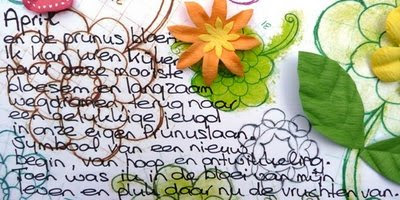 April
en de prunus bloeit
Ik kan uren kijken
naar deze mooiste
bloesem en langzaam
wegdromen terug naar
een gelukkige jeugd
in onze eigen Prunuslaan
Symbool van een nieuw
begin, van hoop en ontwikkeling.
Toen was ik in de bloei van mijn
leven en pluk daar nu de vruchten van.